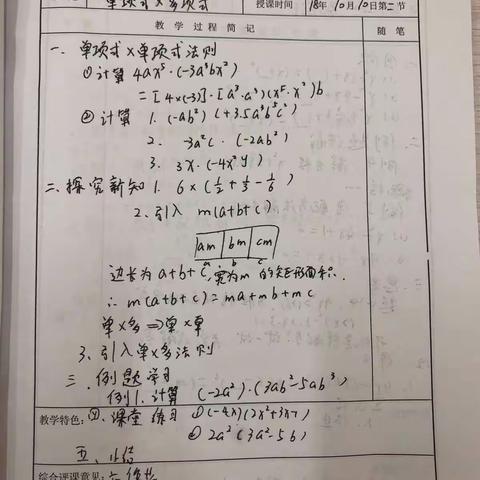 单项式×多项式
授课时间 18年10月10日第二节
教学过程简记 随笔
一、单项式×单项式法则
① 计算 4ax⁵·(-3a³bx²)
=[4×(-3)]·[a³·a³)(x⁵·x²)b
② 计算 1. (-ab²)(+3.5a³b⁵c²)
2. -3a²c·(-2ab²)
3. 3x·(-4x²y)
二、探究新知 1. 6×(1/2+1/3-1/6)
2. 引入 m(a+b+c)
am bm cm
a b c
边长为a+b+c,宽为m的矩形面积
∴ m(a+b+c)=ma+mb+mc
单×多⇒单×单
3、引入单×多法则
三、例题学习
例1. 计算 (-2a²)·(3ab²-5ab³)
教学特色: 四、课堂练习 ①(-4x)(2x²+3x-1)
② 2a²(3a²-5b)
五、小结
综合评课意见: 六、作业